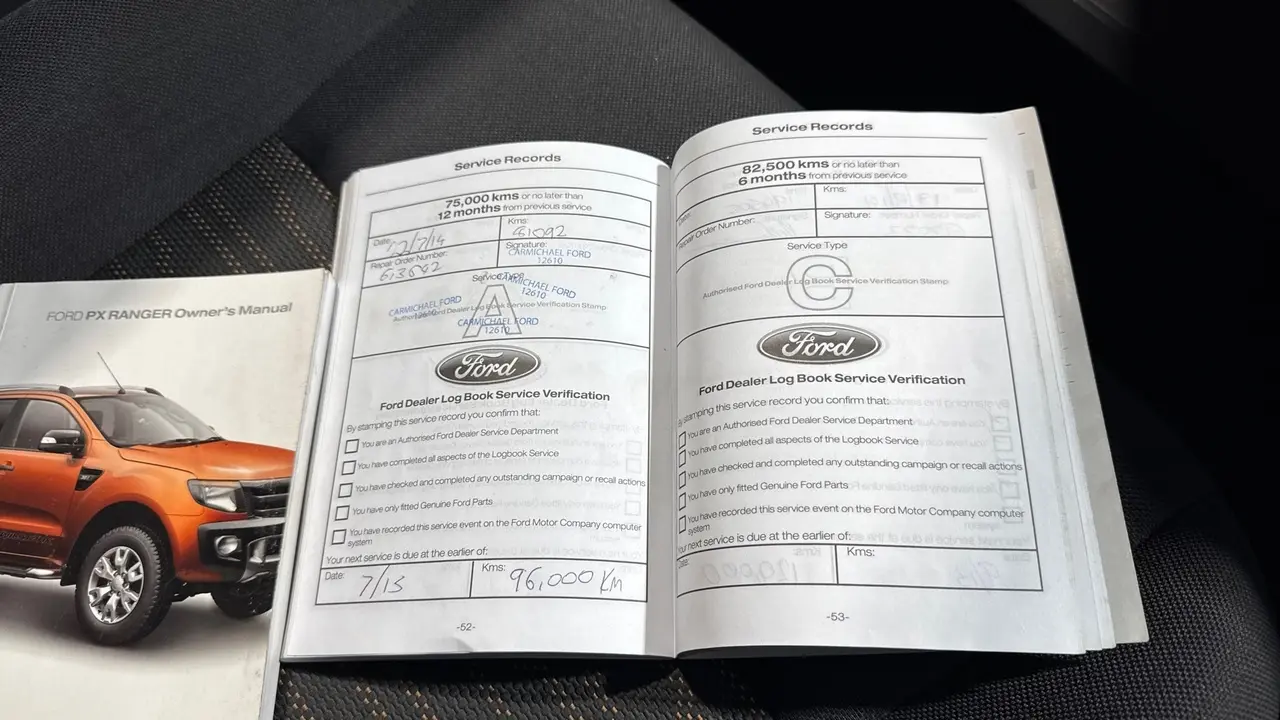 FORD PX RANGER Owner's Manual
Service Records
75,000 kms or no later than
12 months from previous service
Date:
/7/14
Kms:
81092
Repair Order Number:
Signature:
CARMICHAEL FORD
12610
Service Type
A
CARMICHAEL FORD
12610
CARMICHAEL FORD
12610
Authorised Ford Dealer Log Book Service Verification Stamp
CARMICHAEL FORD
12610
Ford
Ford Dealer Log Book Service Verification
By stamping this service record you confirm that:
You are an Authorised Ford Dealer Service Department
You have completed all aspects of the Logbook Service
You have checked and completed any outstanding campaign or recall actions
You have only fitted Genuine Ford Parts
You have recorded this service event on the Ford Motor Company computer
system
Your next service is due at the earlier of:
Date: 7/15
Kms: 96,000 KM
-52-
Service Records
82,500 kms or no later than
6 months from previous service
Date:
Kms:
Repair Order Number:
Signature:
Service Type
C
Authorised Ford Dealer Log Book Service Verification Stamp
Ford
Ford Dealer Log Book Service Verification
By stamping this service record you confirm that:
You are an Authorised Ford Dealer Service Department
You have completed all aspects of the Logbook Service
You have checked and completed any outstanding campaign or recall actions
You have only fitted Genuine Ford Parts
You have recorded this service event on the Ford Motor Company computer
system
Your next service is due at the earlier of:
Date:
Kms:
-53-